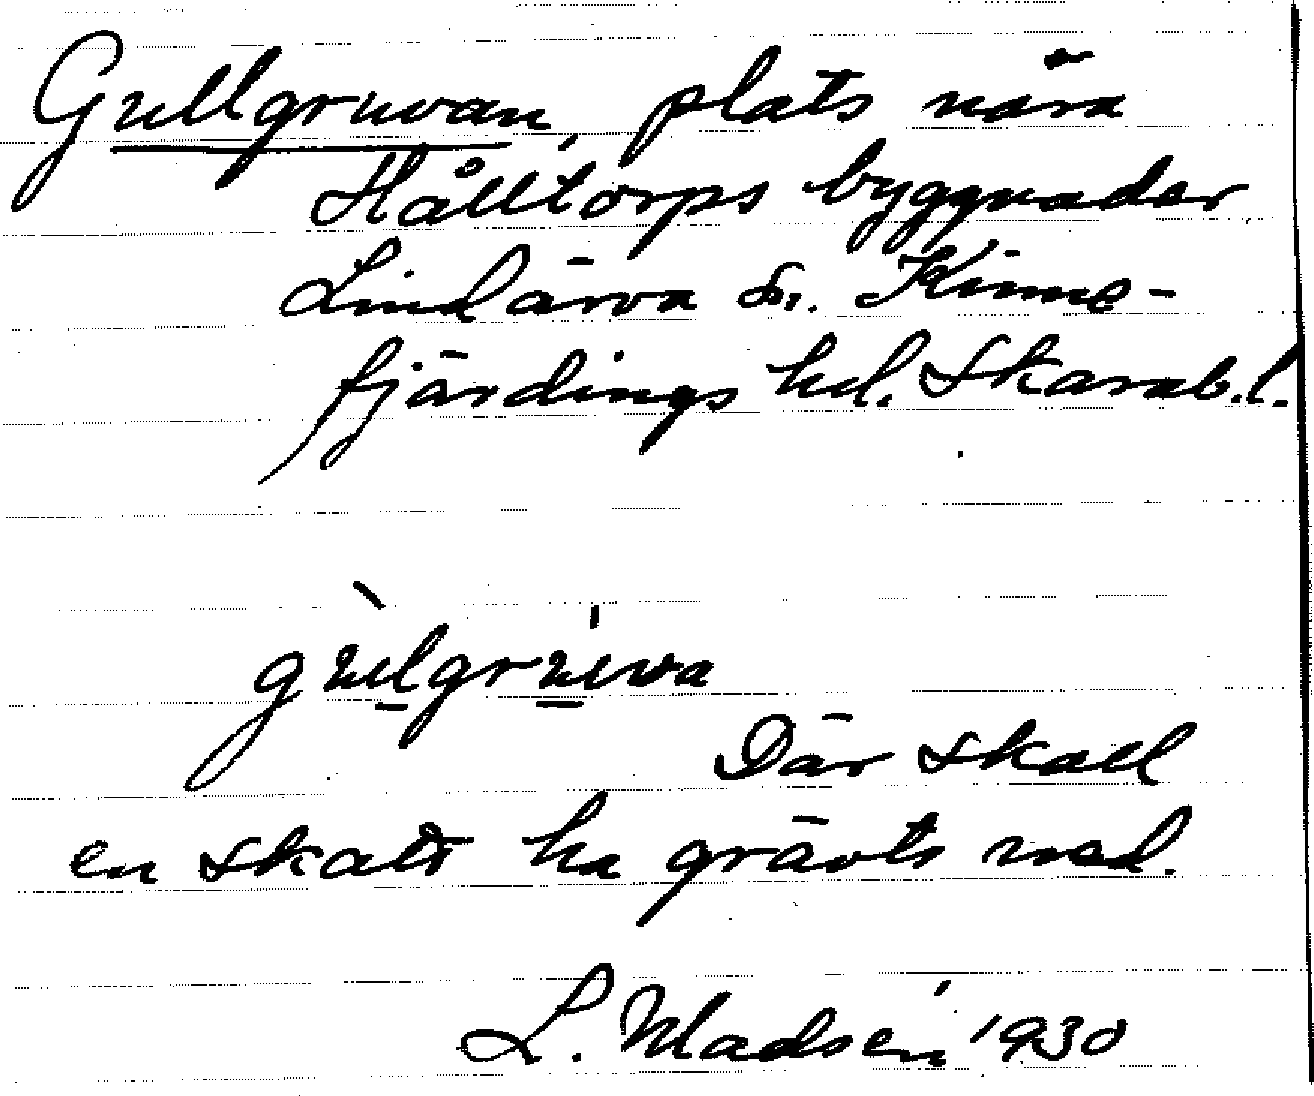 Gullgruvan, plats nära
Hålltorps byggnader
Lindärva sn. Kinne-
fjärdings hd. Skarab.l.
gùlgrúva
Där skall
en skatt ha grävts ned.
L. Madsén 1930